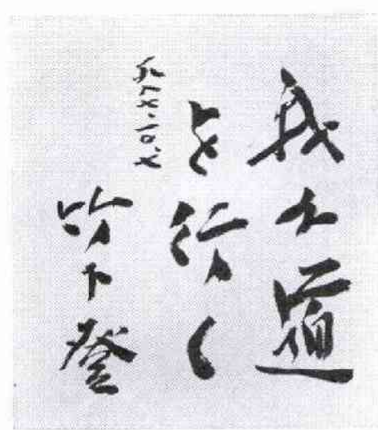 我が道
を行く
竹下登